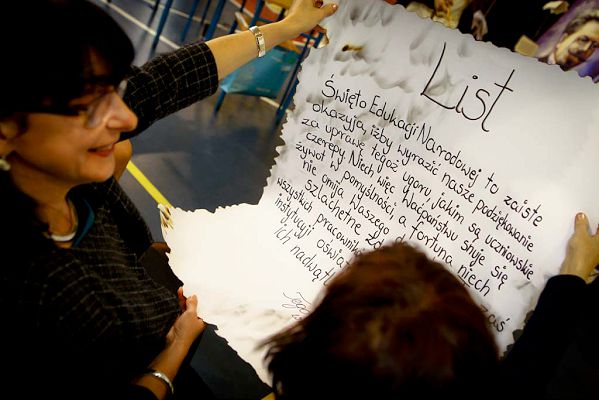 List
Święto Edukacji Narodowej to zaiste
okazyja, iżby wyrazić nasze podziękowanie
za uprawę tegoż ugoru, jakim są uczniowskie
czerepy. Niech więc Waćpaństwu snuje się
żywot w pomyślności, a fortuna niech
nie omija Waszego
szlachetne
wszystkich pracownik
instytucji oświa
ich nadwąt